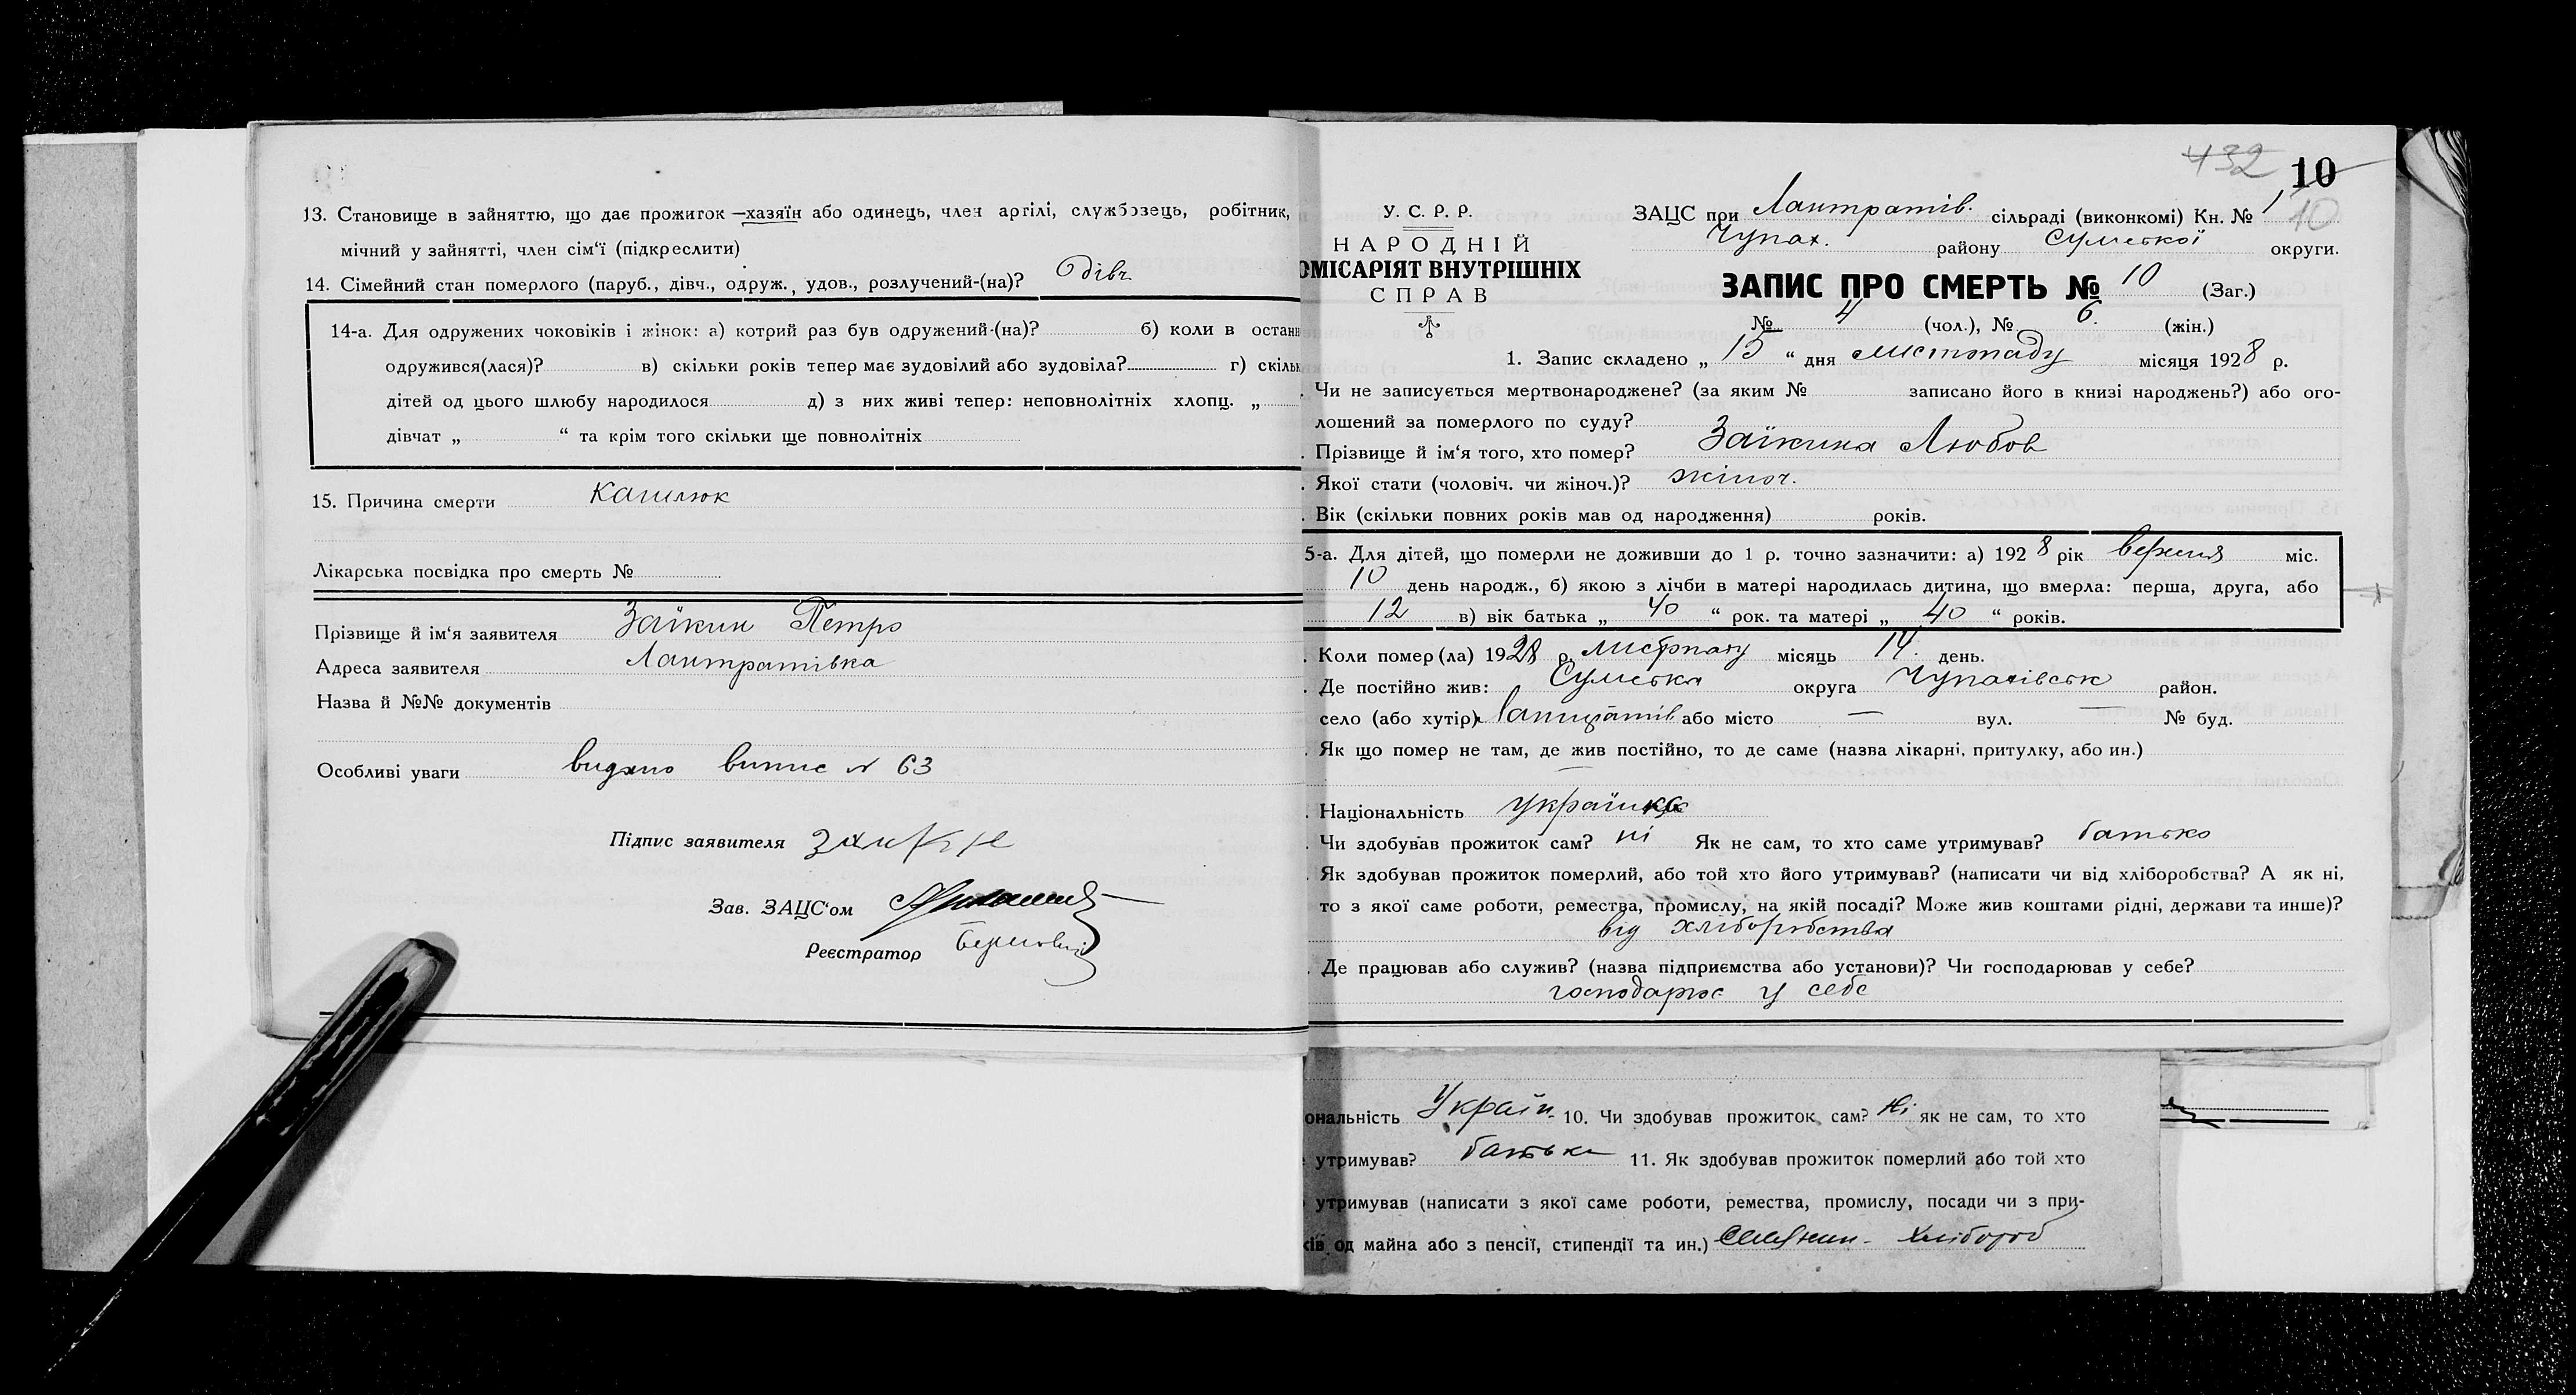 13. Становище в зайняттю, що дає прожиток — хазяїн або одинець, член артілі, службовець, робітник,
мічний у зайнятті, член сім‘ї (підкреслити)
14. Сімейний стан померлого (паруб., дівч., одруж., удов., розлучений-(на)? дівч
14-а. Для одружених чоковіків і жінок: а) котрий раз був одружений-(на)? б) коли в останн
одружився(лася)? в) скільки років тепер має зудовілий або зудовіла? г) скільк
дітей од цього шлюбу народилося д) з них живі тепер: неповнолітніх хлопц. „
дівчат „ “ та крім того скільки ще повнолітніх
15. Причина смерти кашлюк
Лікарська посвідка про смерть №
Прізвище й ім‘я заявителя Заїкин Петро
Адреса заявителя Лантратівка
Назва й №№ документів
Особливі уваги видано випис № 63
Підпис заявителя Заикин
Зав. ЗАЦС‘ом
Реєстратор
432 10
У. С. Р. Р.
НАРОДНІЙ
ОМІСАРІЯТ ВНУТРІШНІХ
СПРАВ
ЗАЦС при Лантратів. сільраді (виконкомі) Кн. № 1 10
Чупах. району Сумської округи.
ЗАПИС ПРО СМЕРТЬ № 10 (Заг.)
№ 4 (чол.), № 6. (жін.)
1. Запис складено „ 15 “ дня листопаду місяця 1928 р.
Чи не записується мертвонароджене? (за яким № записано його в книзі народжень?) або ого-
лошений за померлого по суду?
Прізвище й ім‘я того, хто помер? Заїкина Любов
Якої стати (чоловіч. чи жіноч.)? жіноч.
Вік (скільки повних років мав од народження) років.
5-а. Для дітей, що померли не доживши до 1 р. точно зазначити: а) 1928 рік вересня міс.
10 день народж., б) якою з лічби в матері народилась дитина, що вмерла: перша, друга, або
12 в) вік батька „ 40 “ рок. та матері „ 40 “ років.
Коли помер(ла) 1928 р. листопаду місяць 14. день.
Де постійно жив: Сумська округа Чупахівськ район.
село (або хутір) Лантратів або місто — вул. — № буд.
Як що помер не там, де жив постійно, то де саме (назва лікарні, притулку, або ин.)
—
Національність українка
Чи здобував прожиток сам? ні Як не сам, то хто саме утримував? батько
Як здобував прожиток померлий, або той хто його утримував? (написати чи від хліборобства? А як ні,
то з якої саме роботи, ремества, промислу, на якій посаді? Може жив коштами рідні, держави та инше)?
від хліборобства
Де працював або служив? (назва підприємства або установи)? Чи господарював у себе?
господарює у себе
ональність Україн. 10. Чи здобував прожиток сам? Ні як не сам, то хто
утримував? батьки 11. Як здобував прожиток померлий або той хто
утримував (написати з якої саме роботи, ремества, промислу, посади чи з при-
ків од майна або з пенсії, стипендії та ин.) Селянин - хлібороб